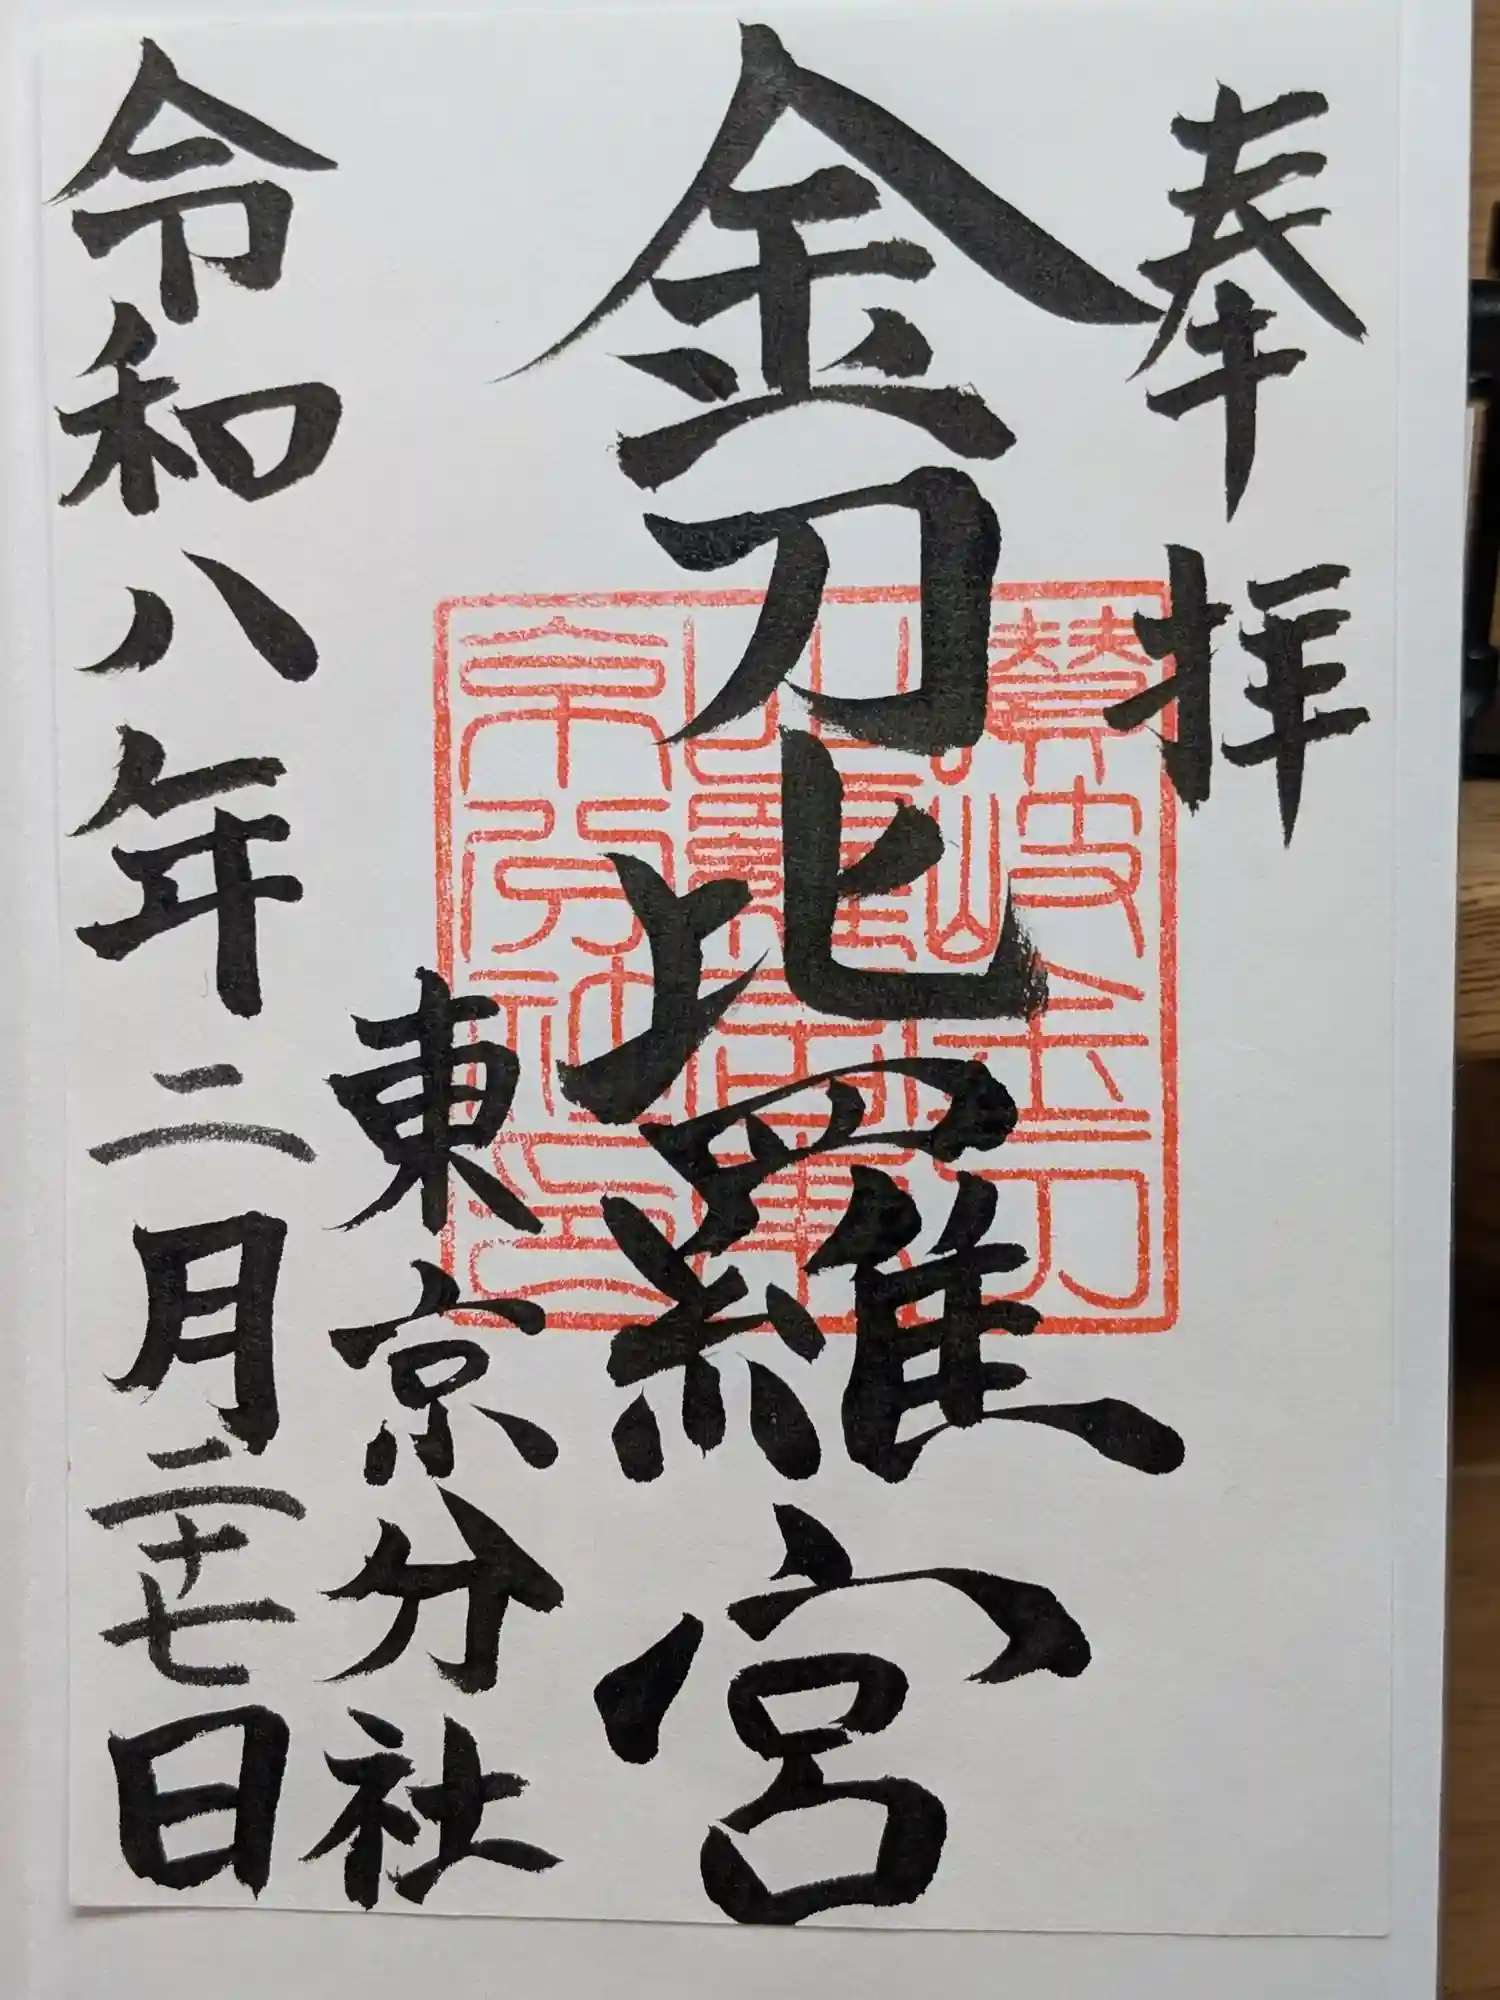 奉拝
金刀比羅宮
東京分社
令和八年二月二十七日
讃岐金刀
比羅宮東
京分社印